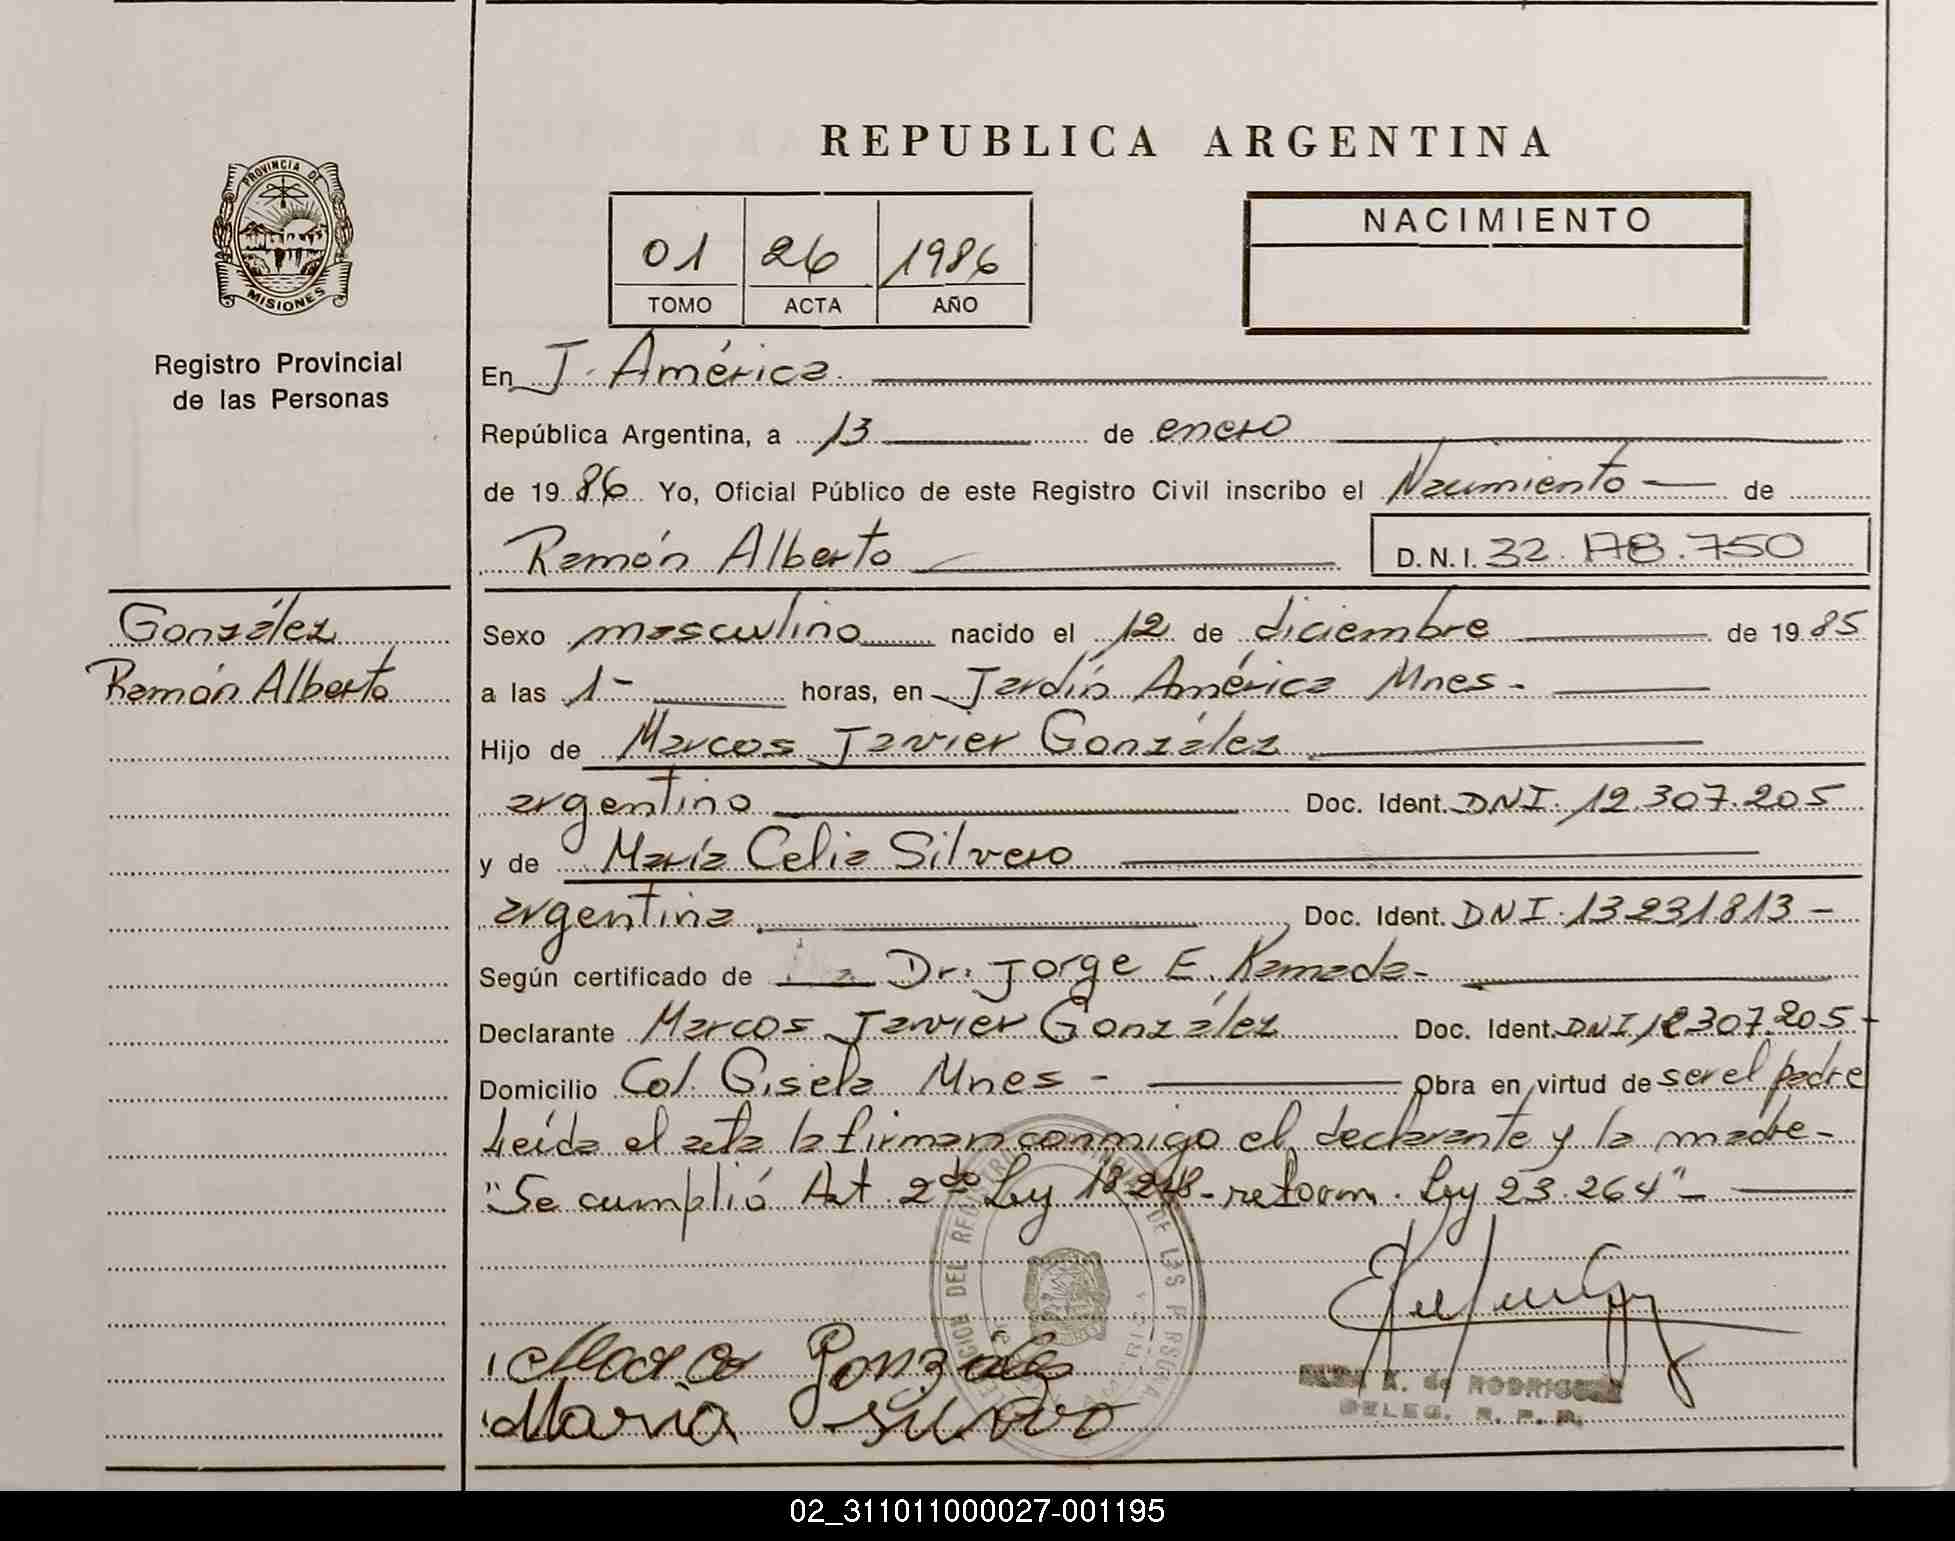 REPUBLICA ARGENTINA
PROVINCIA DE
MISIONES
Registro Provincial
de las Personas
01 26 1986
TOMO ACTA AÑO
NACIMIENTO
En J. América
República Argentina, a 13 de enero
de 19 86 Yo, Oficial Público de este Registro Civil inscribo el Nacimiento de
Ramón Alberto D.N.I. 32.178.750
González
Ramón Alberto
Sexo masculino nacido el 12 de diciembre de 19 85
a las 1- horas, en Jardín América Mnes-
Hijo de Marcos Javier González
argentino Doc. Ident. DNI. 12.307.205
y de María Celia Silvero
argentina Doc. Ident. DNI. 13231813-
Según certificado de Dr. Jorge E. Kamada-
Declarante Marcos Javier González Doc. Ident. DNI 12307.205-
Domicilio Col. Gisela Mnes- Obra en virtud de ser el padre
Leída el acta la firman conmigo el declarante y la madre-
"Se cumplió Art. 2do Ley 18248-reform. Ley 23.264"-
Marcos Gonzales
María Silvero
K. de RODRIGUEZ
DELEG. R. P. P.
02_311011000027-001195